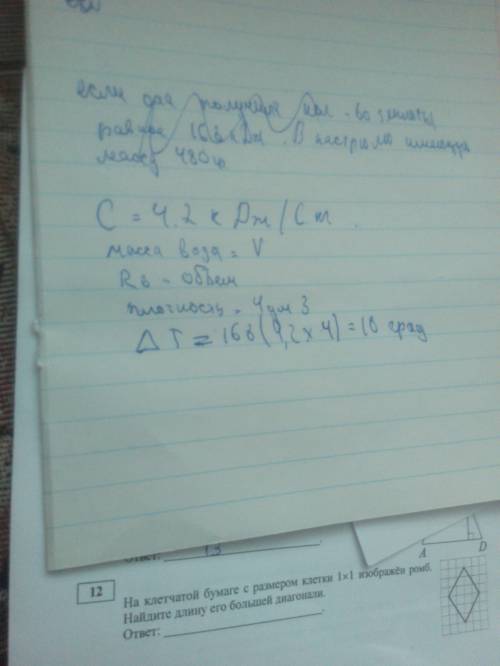 если она получила кол-во теплоты
равное 168 кДж. В кастрюлю
массу 480
C = 4.2 к Дж / С
масса вода = V
Rв = объем
плотность = 4 дм 3
Δ T = 168 (4,2 x 4) = 10 град
Ответ: 13
A D
12
На клетчатой бумаге с размером клетки 1×1 изображён ромб.
Найдите длину его большей диагонали.
Ответ: